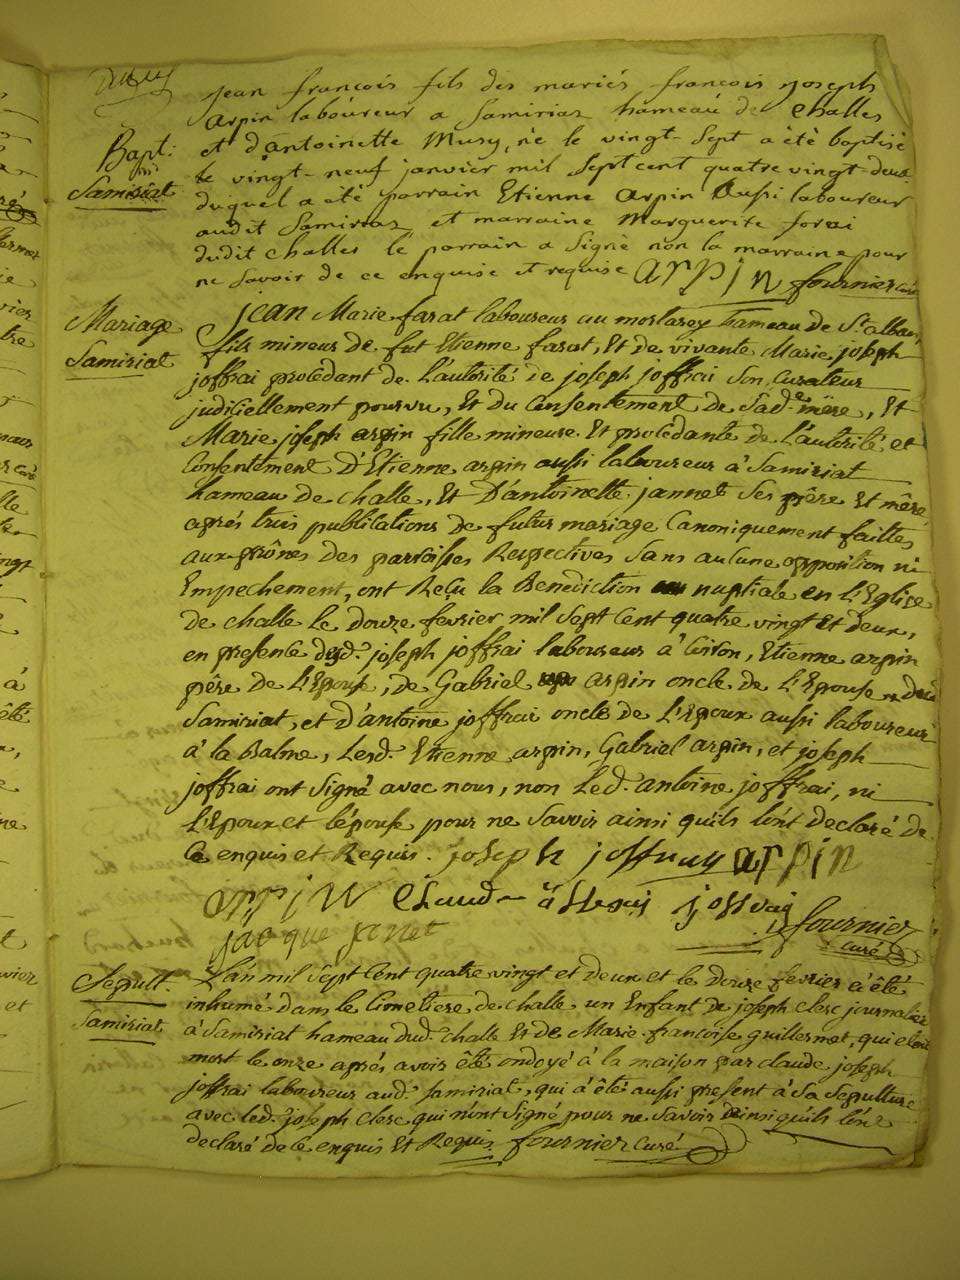 jean francois fils des mariés francois joseph
arpin laboureur a Samiriaz hameau de Challes
Bapt:
et d'antoinette Musy, né le vingt-sept a été baptisé
le vingt-neuf janvier mil sept cent quatre vingt deux
Samiriat
duquel a été parrain Etienne arpin aussi laboureur
audit Samiriaz et marraine Marguerite forai
dudit challes le parrain a signé non la marraine pour
ne savoir de ce enquise et requise arpin fournier curé
Mariage
Samiriat
jean Marie farat laboureur au mortarey hameau de St alban,
fils mineur de fut Etienne farat, Et de vivante Marie joseph
joffrai procédant de l'autorité de joseph joffrai son curateur
judiciellement pourvu, Et du consentement de sad.e mère, Et
Marie joseph arpin fille mineure Et procédante de l'autorité et
Consentement D'Etienne arpin aussi laboureur à Samiriat
hameau de challe, Et D'antoinette jannet ses père Et mère,
aprés trois publications de futur mariage Canoniquement faittes
aux prônes des parroisses Respectives sans aucune opposition ni
Empechement, ont Reçu la Benediction nuptiale en l'Eglise
de challe le douze fevrier mil sept cent quatre vingt Et deux,
en presence dud. joseph joffrai laboureur à Ciron, Etienne arpin
père de l'Epouse, de Gabriel arpin oncle de l'Epouse
Samiriat, et d'antoine joffrai oncle de l'Epoux aussi laboureur
à la Balme, Lesd. Etienne arpin, Gabriel arpin, et joseph
joffrai ont signé avec nous, non led. antoine joffrai, ni
l'Epoux et l'épouse pour ne savoir ainsi qu'ils l'ont declaré de
ce enquis et Requis. joseph joffray arpin
arpin Claude joffrai fournier
jacque janet curé
Sepult.
Samiriat
L'an mil sept cent quatre vingt et deux et le douze fevrier à été
inhumé dans le Cimetiere de challe un Enfant de joseph clerc journalier
à Samiriat hameau dud. challe Et de Marie francoise guillermet, qui etoit
mort le onze aprés avoir été ondoyé à la maison par claude joseph
joffrai laboureur aud. samiriat, qui à été aussi present à sa sepulture
avec led. joseph clerc qui n'ont signé pour ne savoir ainsi qu'ils l'ont
declaré de ce enquis Et Requis fournier curé